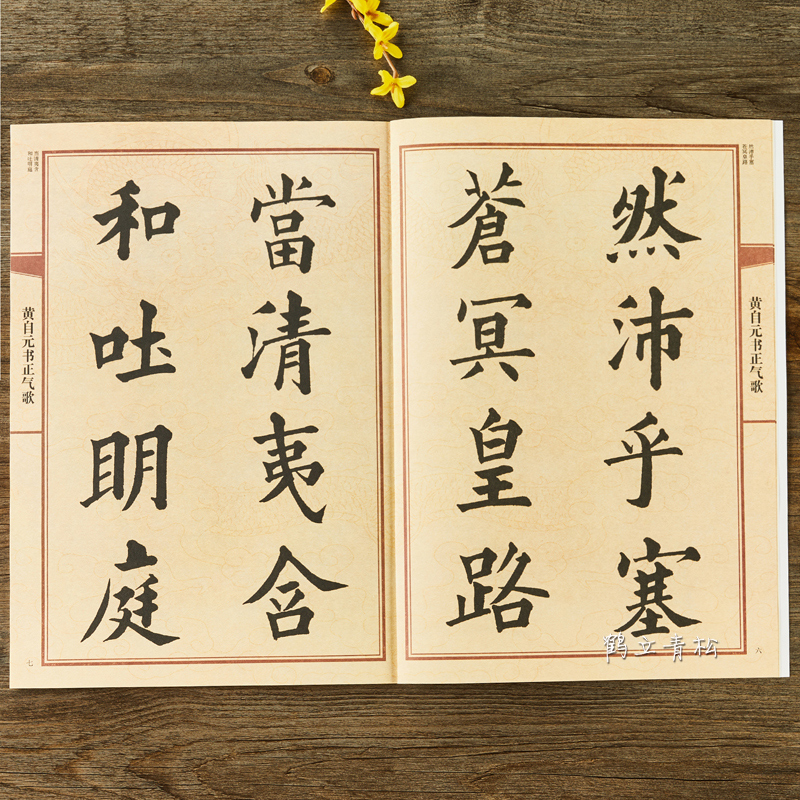 然沛乎塞
蒼冥皇路
當清夷含
和吐明庭
黄自元书正气歌
黄自元书正气歌
六
七
鹤立青松